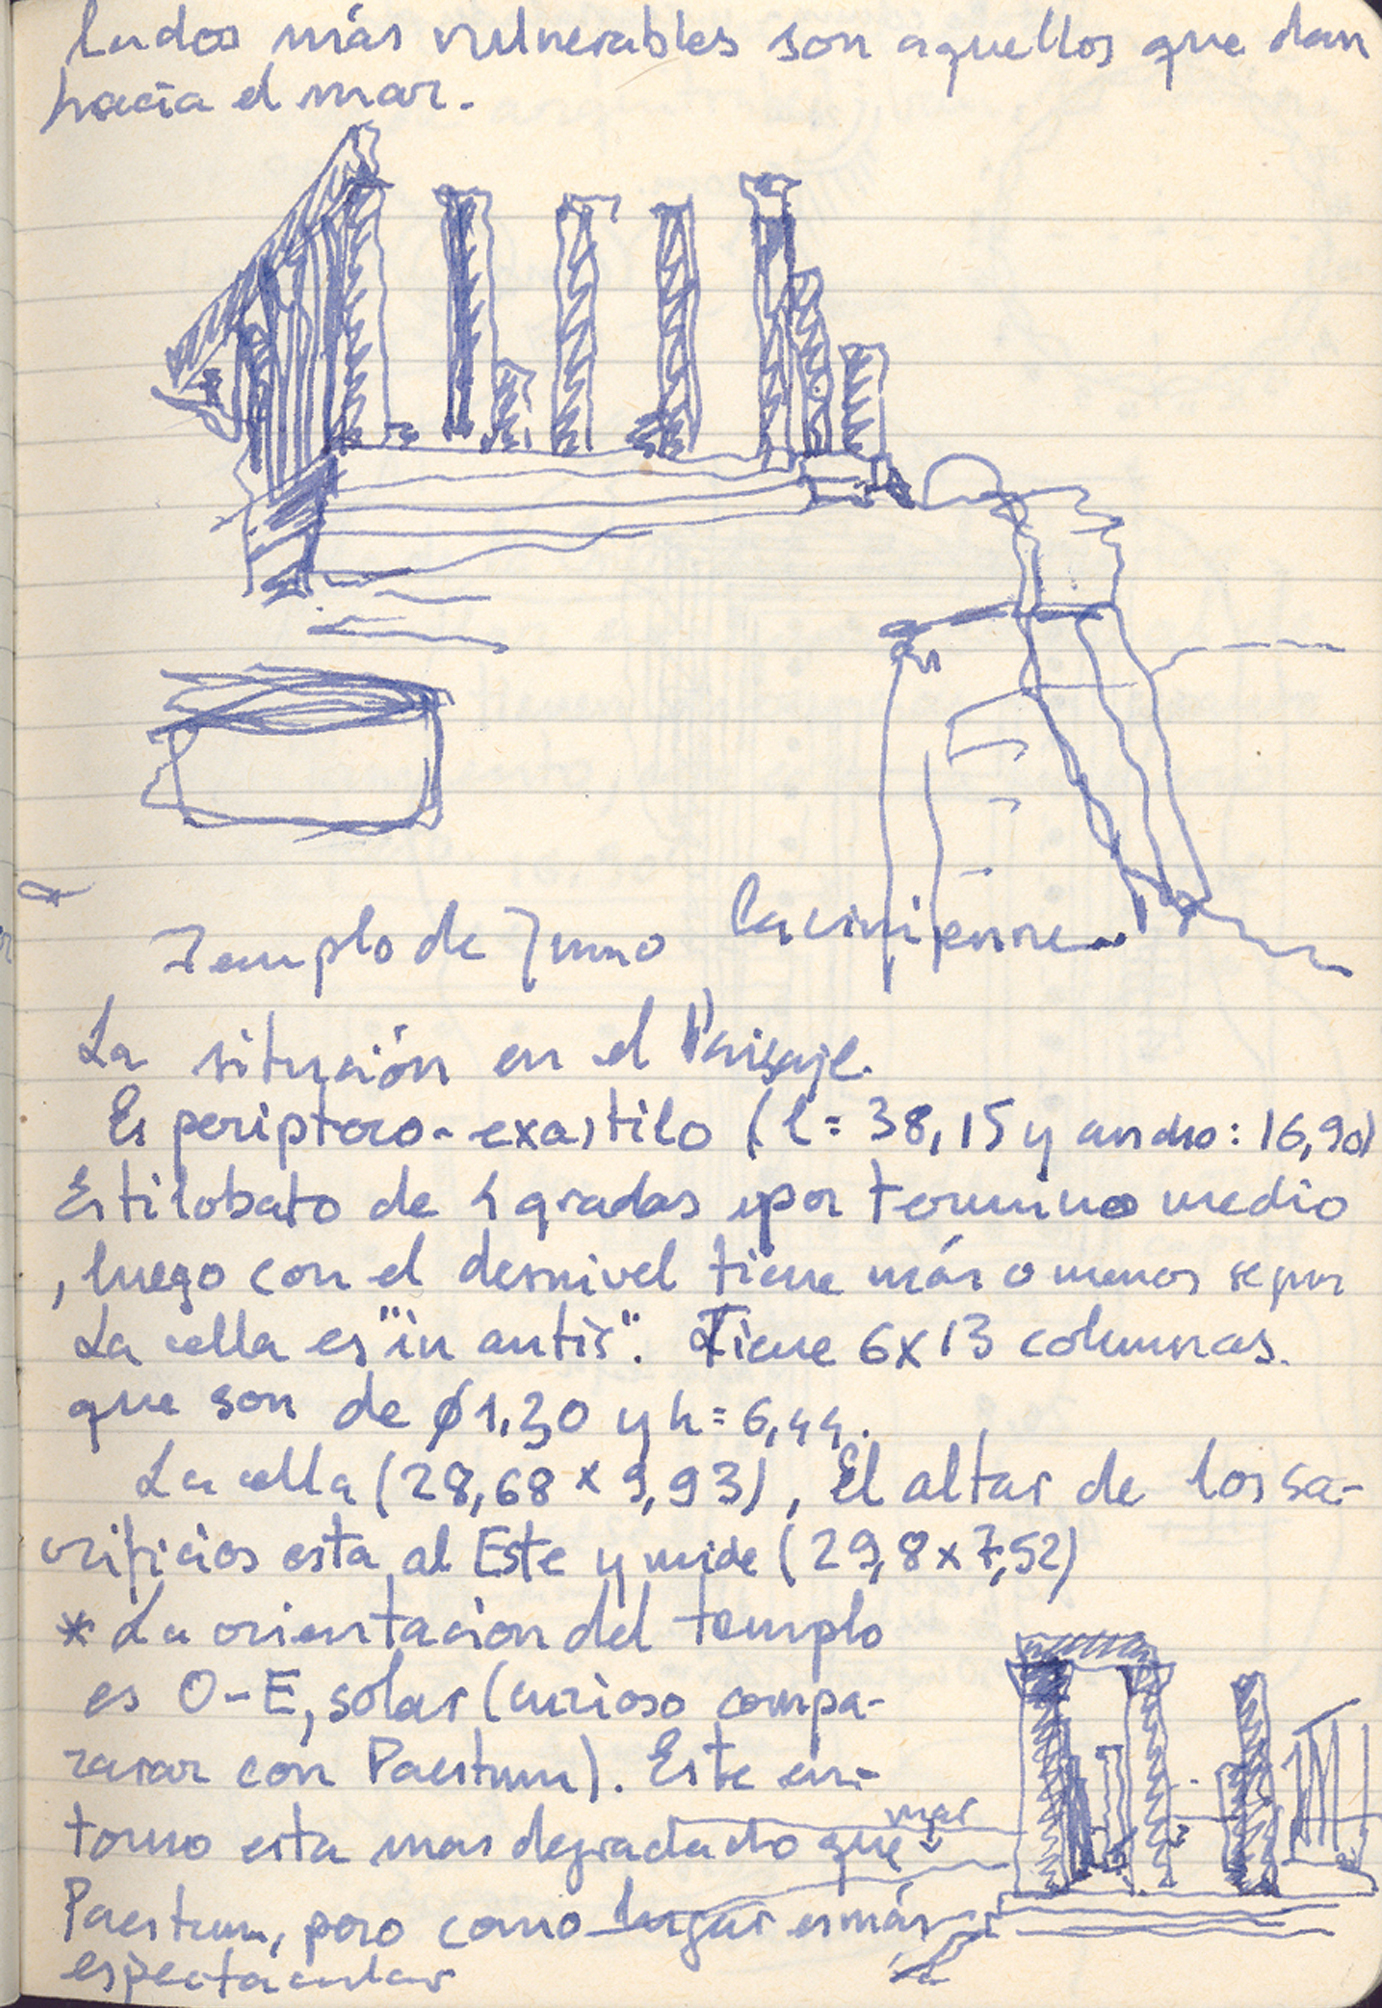 lados más vulnerables son aquellos que dan
hacia el mar.
Templo de Juno Lacinienne
La situación en el Paisaje.
Es periptero-exastilo (l= 38,15 y ancho: 16,90)
Estilobato de 4 gradas por termino medio
, luego con el desnivel tiene más o menos segun
La cella es "in antis". Tiene 6x13 columnas.
que son de ø1.30 y h= 6,44.
La cella (28,68 x 9,93), El altar de los sa-
crificios esta al Este y mide (29,8 x 7,52)
* La orientacion del templo
es O-E, solar (curioso compa-
rarar con Paestum). Este en-
torno esta mas degradado que
mar
Paestum, pero como lugar es más
espectacular